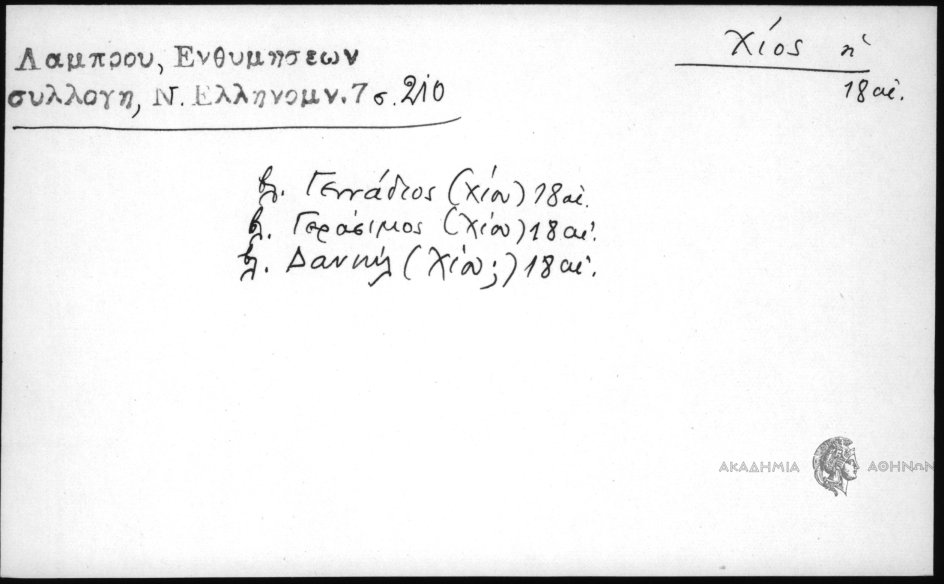 Λαμπρου, Ενθυμησεων
συλλογη, Ν. Ελληνομν. 7 σ. 210
Χίος ἡ
18 αἰ.
βλ. Γεννάδιος (Χίου) 18 αἰ.
βλ. Γεράσιμος (Χίου) 18 αἰ.
βλ. Δανιήλ (Χίου;) 18 αἰ.
ΑΚΑΔΗΜΙΑ ΑΘΗΝΩΝ